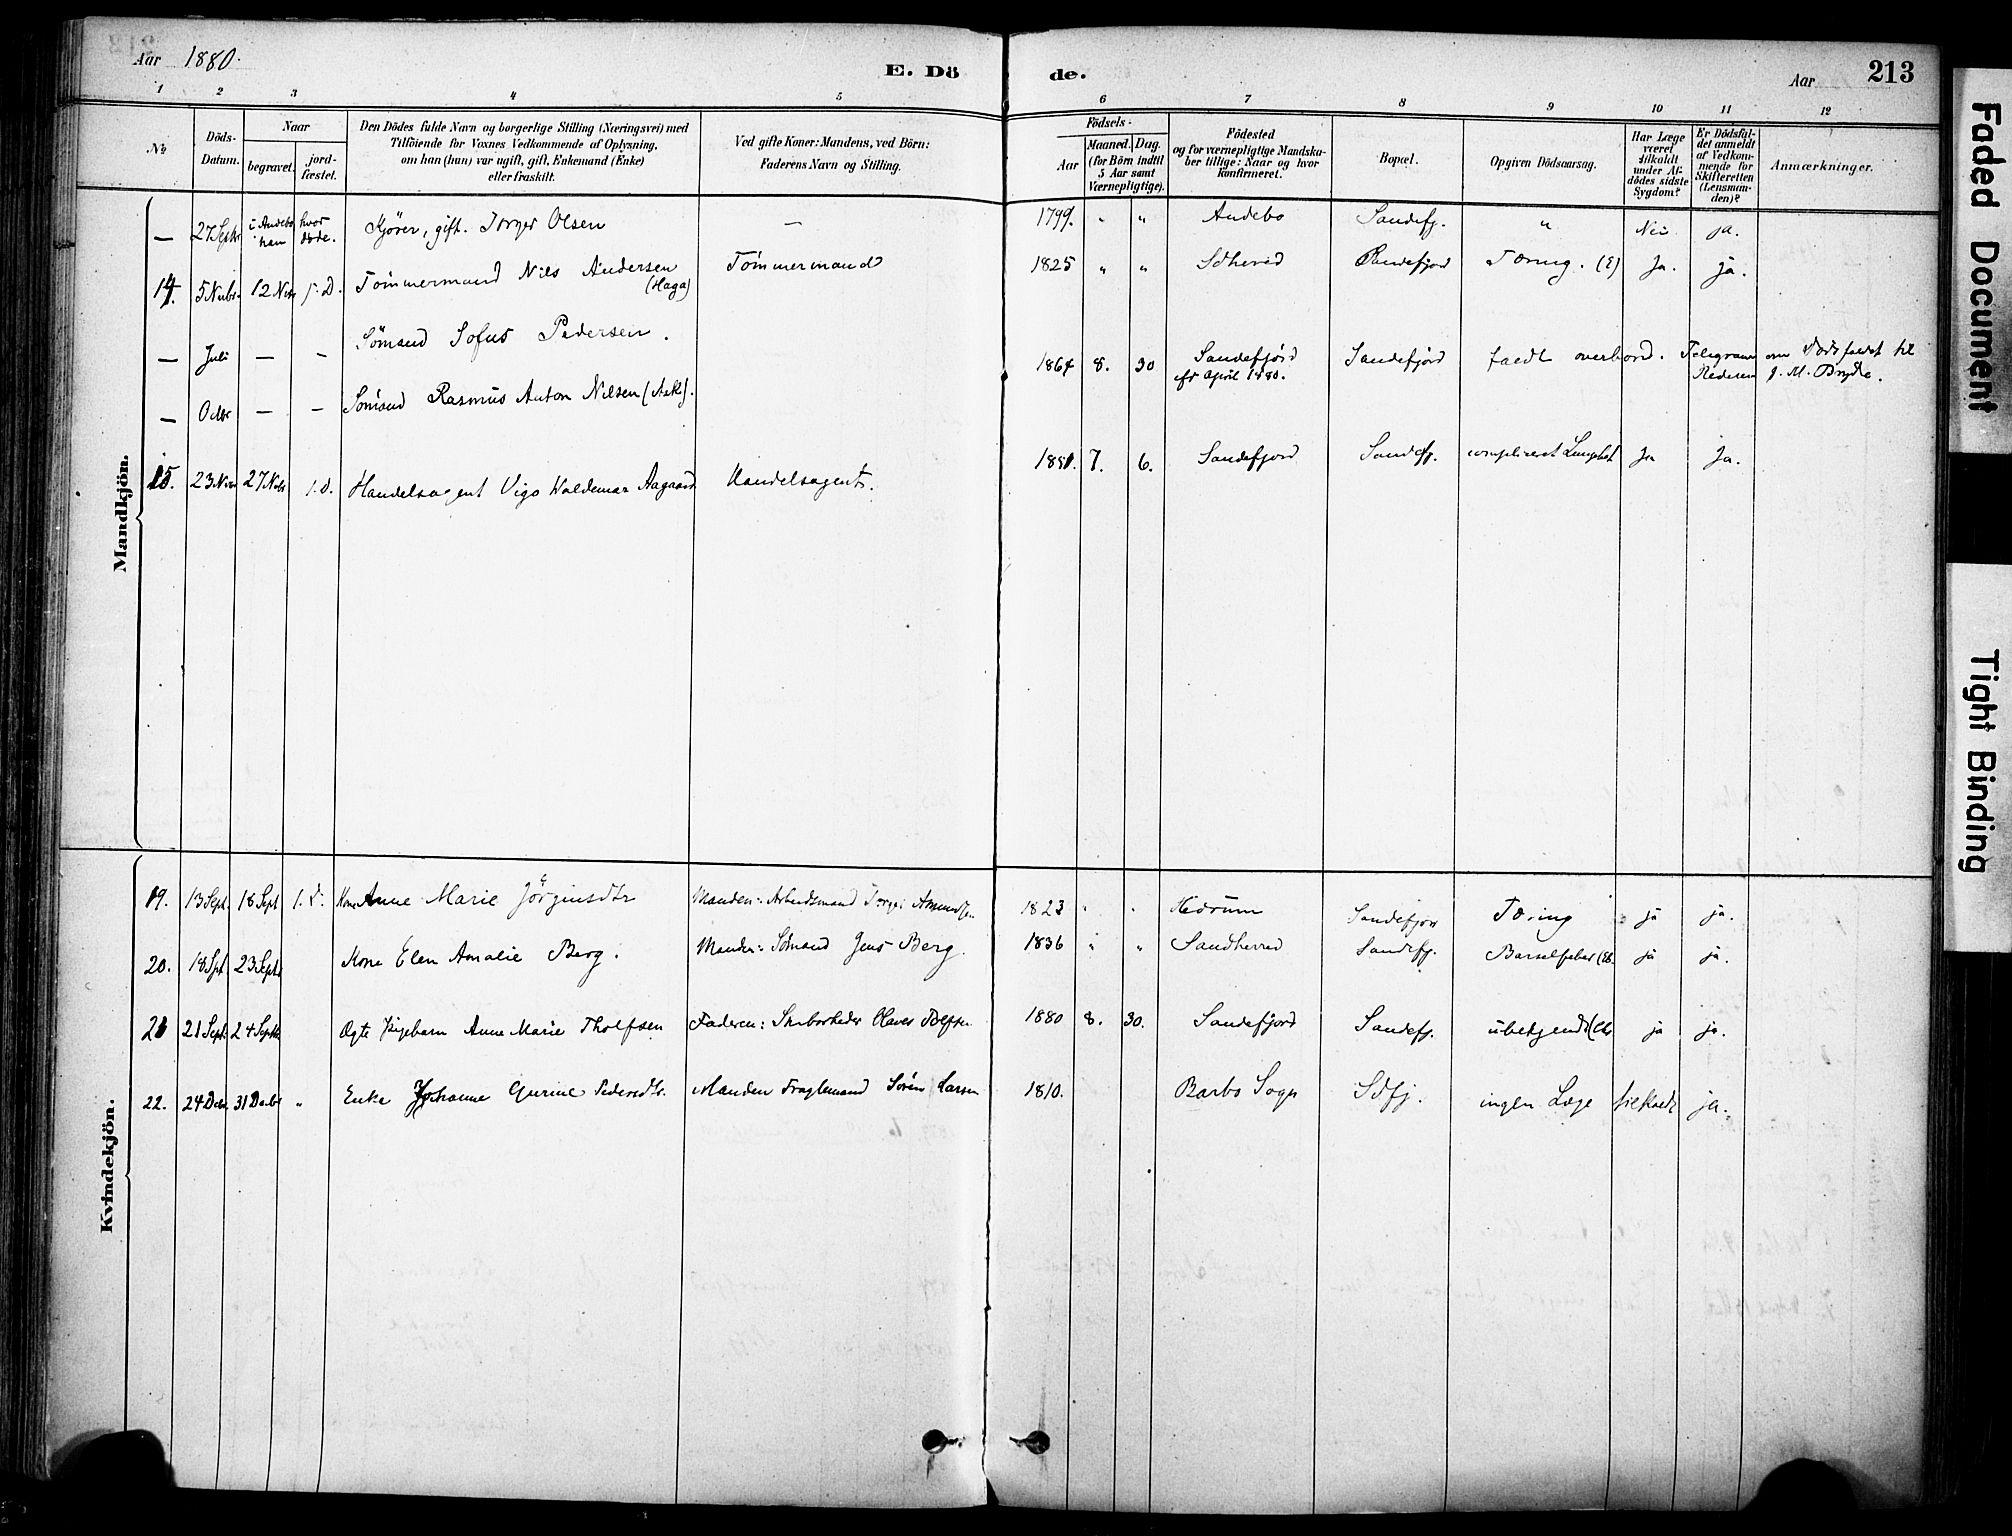 Aar 1880.
E. Dö de.
Aar
213
1 2 3 4 5 6 7 8 9 10 11 12
No.
Döds-Datum.
Naar
begravet.
jord-fæstet.
Den Dödes fulde Navn og borgerlige Stilling (Næringsvei) med
Tilföiende for Voxnes Vedkommende af Oplysning,
om han (hun) var ugift, gift, Enkemand (Enke)
eller fraskilt.
Ved gifte Koner: Mandens, ved Börn:
Faderens Navn og Stilling.
Födsels-
Aar
Maaned. Dag.
(for Börn indtil
5 Aar samt
Værnepligtige).
Födested
og for værnepligtige Mandska-
ber tillige: Naar og hvor
konfirmeret.
Bopæl.
Opgiven Dödsaarsag.
Har Læge
været
tilkaldt
under Af-
dödes sidste
Sygdom?
Er Dödsfal-
det anmeldt
af Vedkom-
mende for
Skifteretten
(Lensman-
den)?
Anmærkninger.
Mandkjön.
— 27 Septbr i Andebo hvor han døde. Kjører, gift. Torger Olsen — 1799. " " Andebo Sandefj. " Nei ja.
14. 5 Nvbr 12 Nvbr s. D. Tømmermand Nils Andersen (Haga) Tømmermand 1825 " " Sdherred Sandefjord Tæring. (E) Ja. ja.
— Juli — — Sømand Sofus Pedersen. 1864 8. 30 Sandefjord Sandefjord faldt overbord. Telegram om Dødsfaldet til
cfr April 1880. Rederen J. M. Bryde.
— Octbr — — Sømand Rasmus Anton Nilsen (Ask).
15. 23 Nvbr 27 Nvbr s. D. Handelsagent Vigo Waldemar Aagaard Handelsagent. 1851. 7. 6. Sandefjord Sandefj. compliceret Lungbet. Ja Ja.
Kvindekjön.
19. 13 Sept. 18 Sept s. d. Kone Anne Marie Jørginsdtr Manden: Arbeidsmand Torger Amundsen 1823 " " Hedrum Sandefjord Tæring ja ja.
20. 18 Spt 23 Septr Kone Elen Amalie Berg. Manden: Sømand Jens Berg. 1836 " " Sandherred Sandefj. Barselfeber ja ja.
21 21 Sept. 24 Septbr Ægte Pigebarn Anne Marie Tholfsen Faderen: Skibsreder Olaves Tolfsen 1880 8. 30. Sandefjord Sandefj. ubekjendt ja ja.
22. 24 Decbr. 31 Decbr " Enke Johanne Gurine Pedersdtr. Manden Fragtemand Søren Larsen 1810. Barbo Sogn Sdfj. ingen Læge tilkaldt ja.
Faded Document
Tight Binding